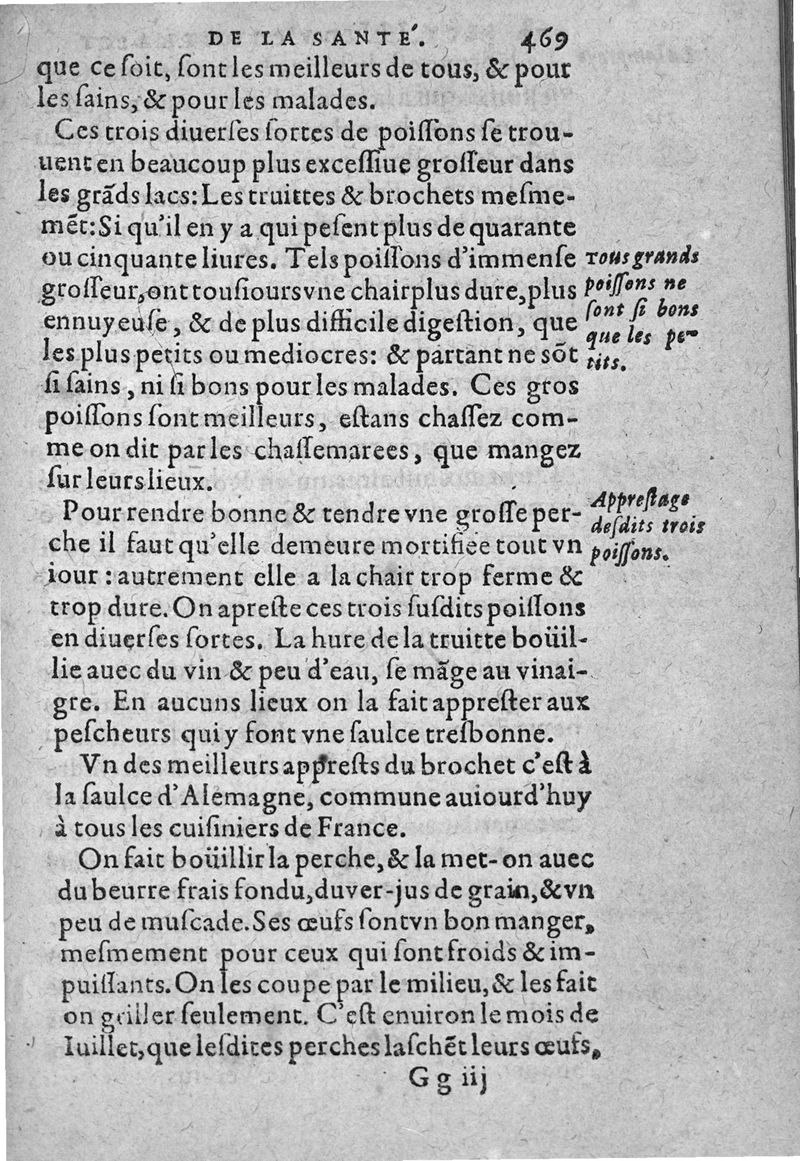 DE LA SANTE'. 469
que ce ſoit, ſont les meilleurs de tous, & pour
les ſains, & pour les malades.
Ces trois diuerſes ſortes de poiſſons ſe trou-
uent en beaucoup plus exceſſiue groſſeur dans
les grãds lacs: Les truittes & brochets meſme-
mẽt: Si qu'il en y a qui peſent plus de quarante
ou cinquante liures. Tels poiſſons d'immenſe
groſſeur, ont touſiours vne chair plus dure, plus
ennuyeuſe, & de plus difficile digeſtion, que
les plus petits ou mediocres: & partant ne sõt
ſi ſains, ni ſi bons pour les malades. Ces gros
poiſſons ſont meilleurs, eſtans chaſſez com-
me on dit par les chaſſemarees, que mangez
ſur leurs lieux.
Tous grands
poiſſons ne
ſont ſi bons
que les pe-
tits.
Pour rendre bonne & tendre vne groſſe per-
che il faut qu'elle demeure mortifiée tout vn
iour: autrement elle a la chair trop ferme &
trop dure. On apreſte ces trois ſuſdits poiſſons
en diuerſes ſortes. La hure de la truitte boüil-
lie auec du vin & peu d'eau, ſe mãge au vinai-
gre. En aucuns lieux on la fait appreſter aux
peſcheurs qui y font vne ſaulce treſbonne.
Appreſtage
deſdits trois
poiſſons.
Vn des meilleurs appreſts du brochet c'eſt à
la ſaulce d'Alemagne, commune auiourd'huy
à tous les cuiſiniers de France.
On fait boüillir la perche, & la met-on auec
du beurre frais fondu, du ver-jus de grain, & vn
peu de muſcade. Ses œufs ſont vn bon manger,
meſmement pour ceux qui ſont froids & im-
puiſſants. On les coupe par le milieu, & les fait
on griller ſeulement. C'eſt enuiron le mois de
Iuillet, que leſdites perches laſchẽt leurs œufs,
G g iij